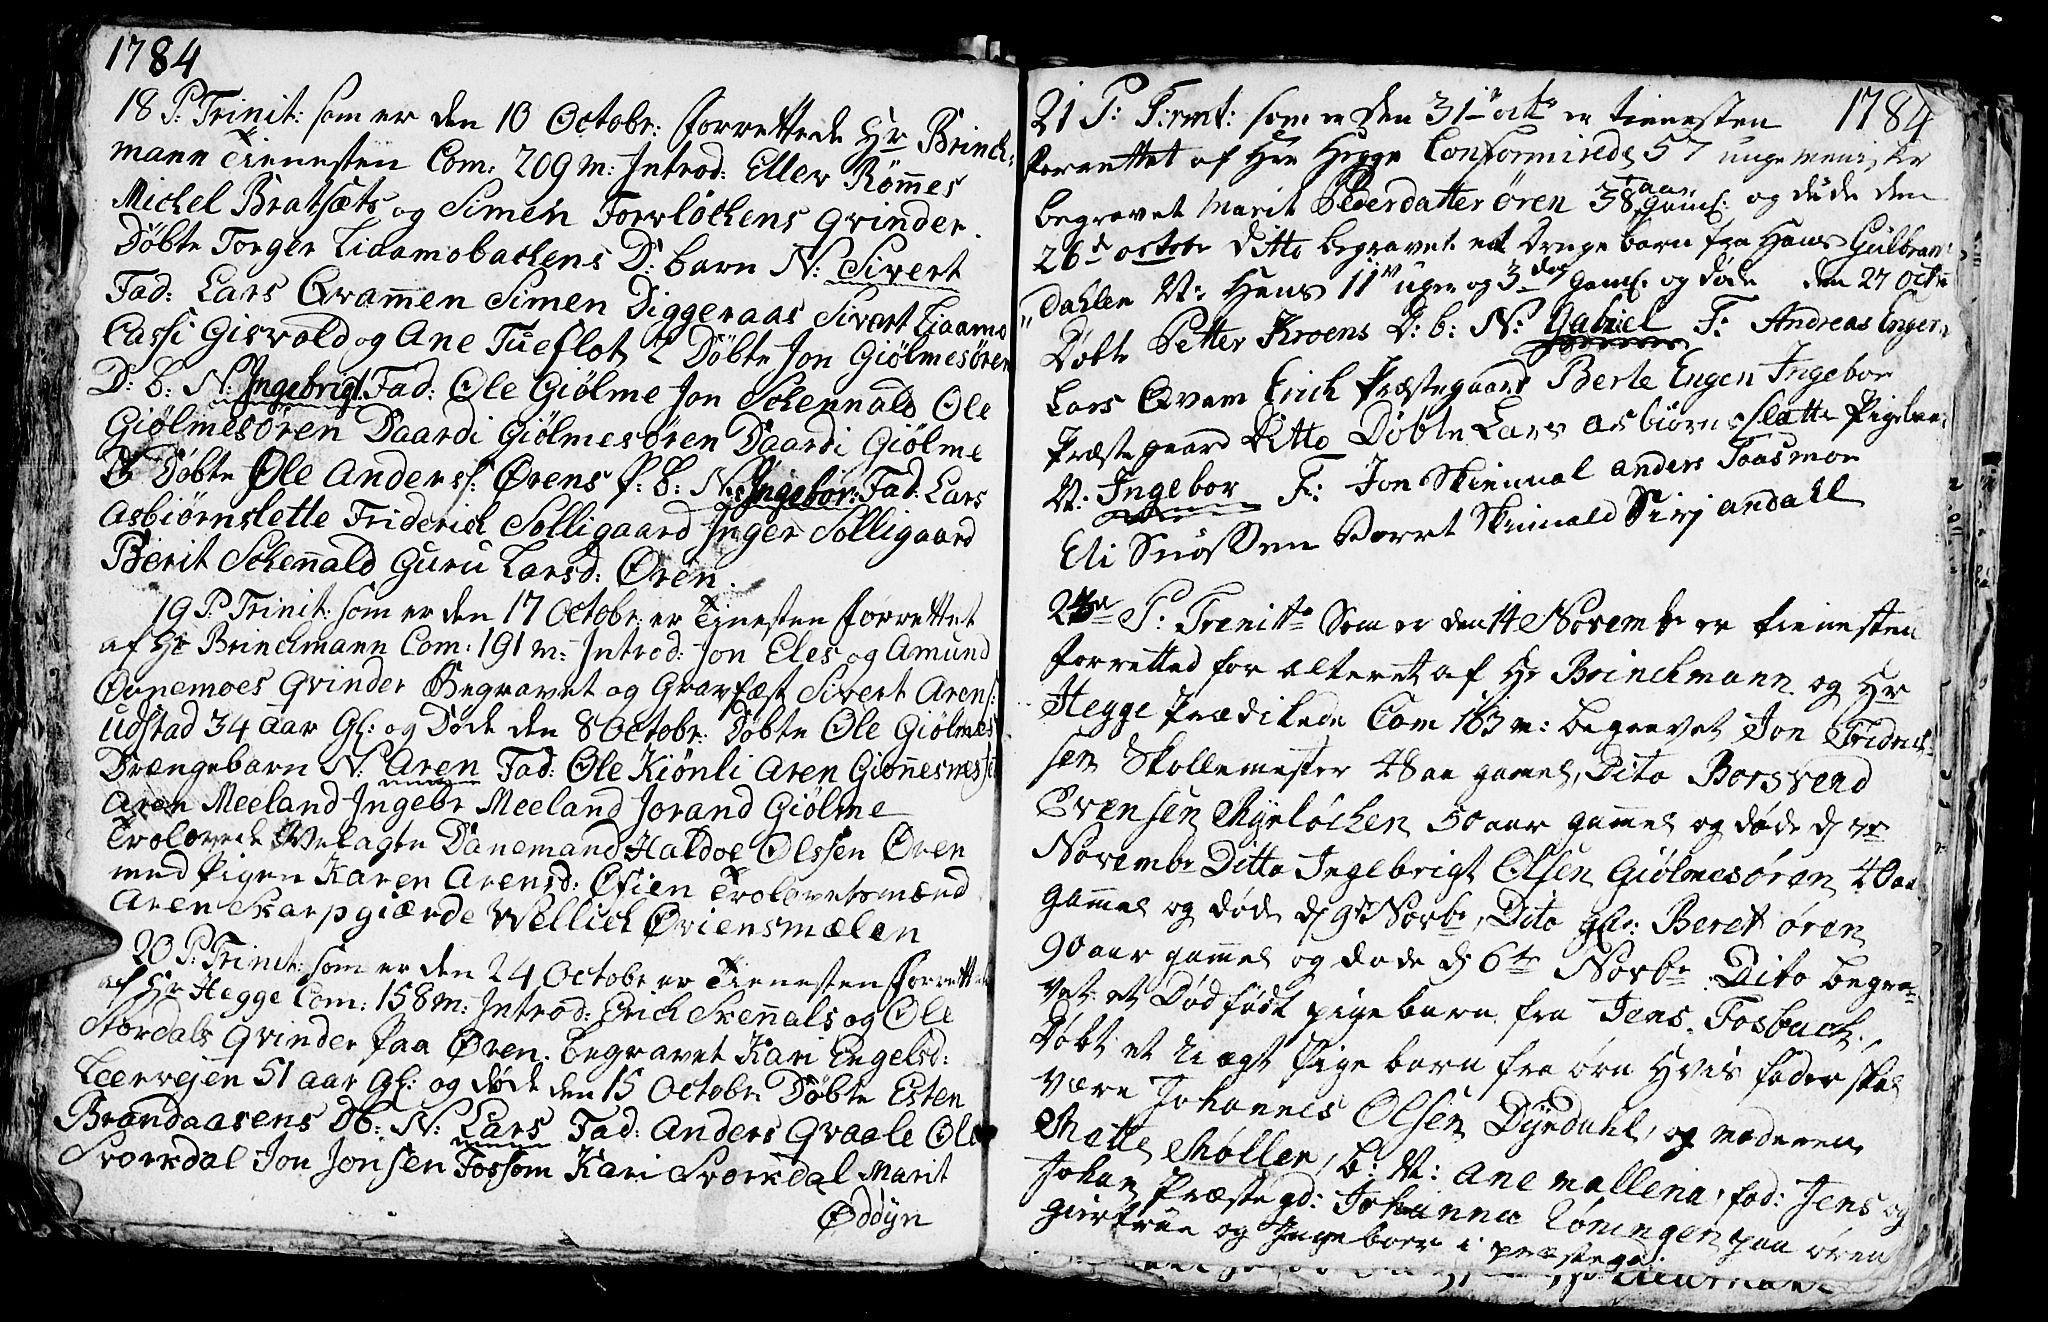 1784
18 P: Trinit: som er den 10 Octobr: forrettede Hr Brinck:
mann Tienesten Com: 209 m: Introd: Ellev Römmes
Michel Bratsæts og Simen Forrløckens Qvinder.
Døbte Torger Liaamobackens D: barn N: Sivert
Fad: Lars Qvammen Simen Diggeraas Sivert Liaamo
Cassi Gisvold og Ane Tueflot & Døbte Jon Giølmesøren
D: B: N: Ingebrigt Fad: Ole Giølme Jon Schennald Ole
Giølmesøren Baardi Giølmesøren Baardi Giølme
& Døbte Ole Anders: Ørens P: B: N: Ingebor: Fad: Lars
Asbiørnslette Friderich Solligaard Inger Solligaard
Berit Schennald Guru Larsd: Øren.
19 P: Trinit: som er den 17 Octobr: er Tienesten forrettet
af Hr Brinckmann Com: 191 m: Introd: Jon Eles og Amund
Øvnemoes Qvinder Begravet og Gravfæst Sivert Arens:
Udstad 34 aar Gl: og Døde den 8 Octobr: Døbte Ole Giølmes
Drængebarn N: Aren Fad: Ole Kiönli Aren Gionnesmes
Aren Meeland Ingebr Meeland Jorand Giølme
Trolovede Velagte Danemand Haldoe Olssen Øren
med Pigen Karen Arensd: Øfien Trolovetsmænd
Aren Skarpgiærde Wellich Øviensmælen
20 P: Trinit: som er den 24 Octobr er Tienesten forrettet
af Hr Hegge Com: 158 m: Introd: Erich Skennals og Ole
Stordals Qvinder Paa Øren. begravet Kari Engelsd:
Leervejen 51 aar Gl: og døde den 15 Octobr Døbte Esten
Brandaasens DB: N: Lars Fad: Anders Qvaale Ole
Svorkdal Jon Jonsen Fossom Kari Svorkdal Marit
Øddyn
21 P: Trint: som er den 31 octo er tienesten 1784
forrettet af Her Hegge Confermirede 57 unge menisker
begravet Marit Pederdatter øren 38 aar gaml: og dude den
26 octobr ditto begravet et drenge barn fra Hans Gulbran
dahlen N: Hans 11 uger og 3 dag gaml: og døde den 27 Octb
Døbte Petter Kroens D: b: N: Gabriel F: Andreas Enger
Lars Qvam Erich Præstegaard Berte Engen Ingebor
Præstegaard Ditto Døbte Lars asbiørnslette Pigebar:
N: Ingebor F: Jon Skienual anders Taasmoe
Eli Snøssen Barret Skinnald Sirj andahl
P: Trenitt Som er den 14 Novembr er tienesten
forretted for alteret af Hr Brinckmann og Hr
Hegge Prædikede Com 163 m: begravet Jon Fridrich
sen Skollemester 48 aa gamel, Dito Borsvend
Evensen Myrløcken 50 aar gammel og døde d
Novembr Ditto Ingebrigt Olsen Giølmesøren 40 aa
gammel og døde d 9de Novbr, Dito Beret øren
90 aar gammel og døde d 6te Novbr. Dito begra
vet et Dødfødt pige barn fra Jens Fosback,
Døbt et Uægt Pige barn fra ørn Hvis fader skal
være Johannes Olsen Dyrdahl, og moderen
Mette Møllen, b: N: Ane Mallena, fad: Jens og
Johan Præstegd: Johanna Löningen paa øren
giertrue og Ingeborr i præstegd: